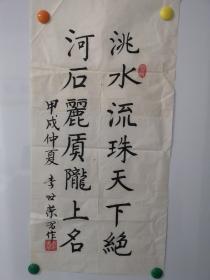 洮水流珠天下絶
河石麗質隴上名
甲戌仲夏 李世榮習作